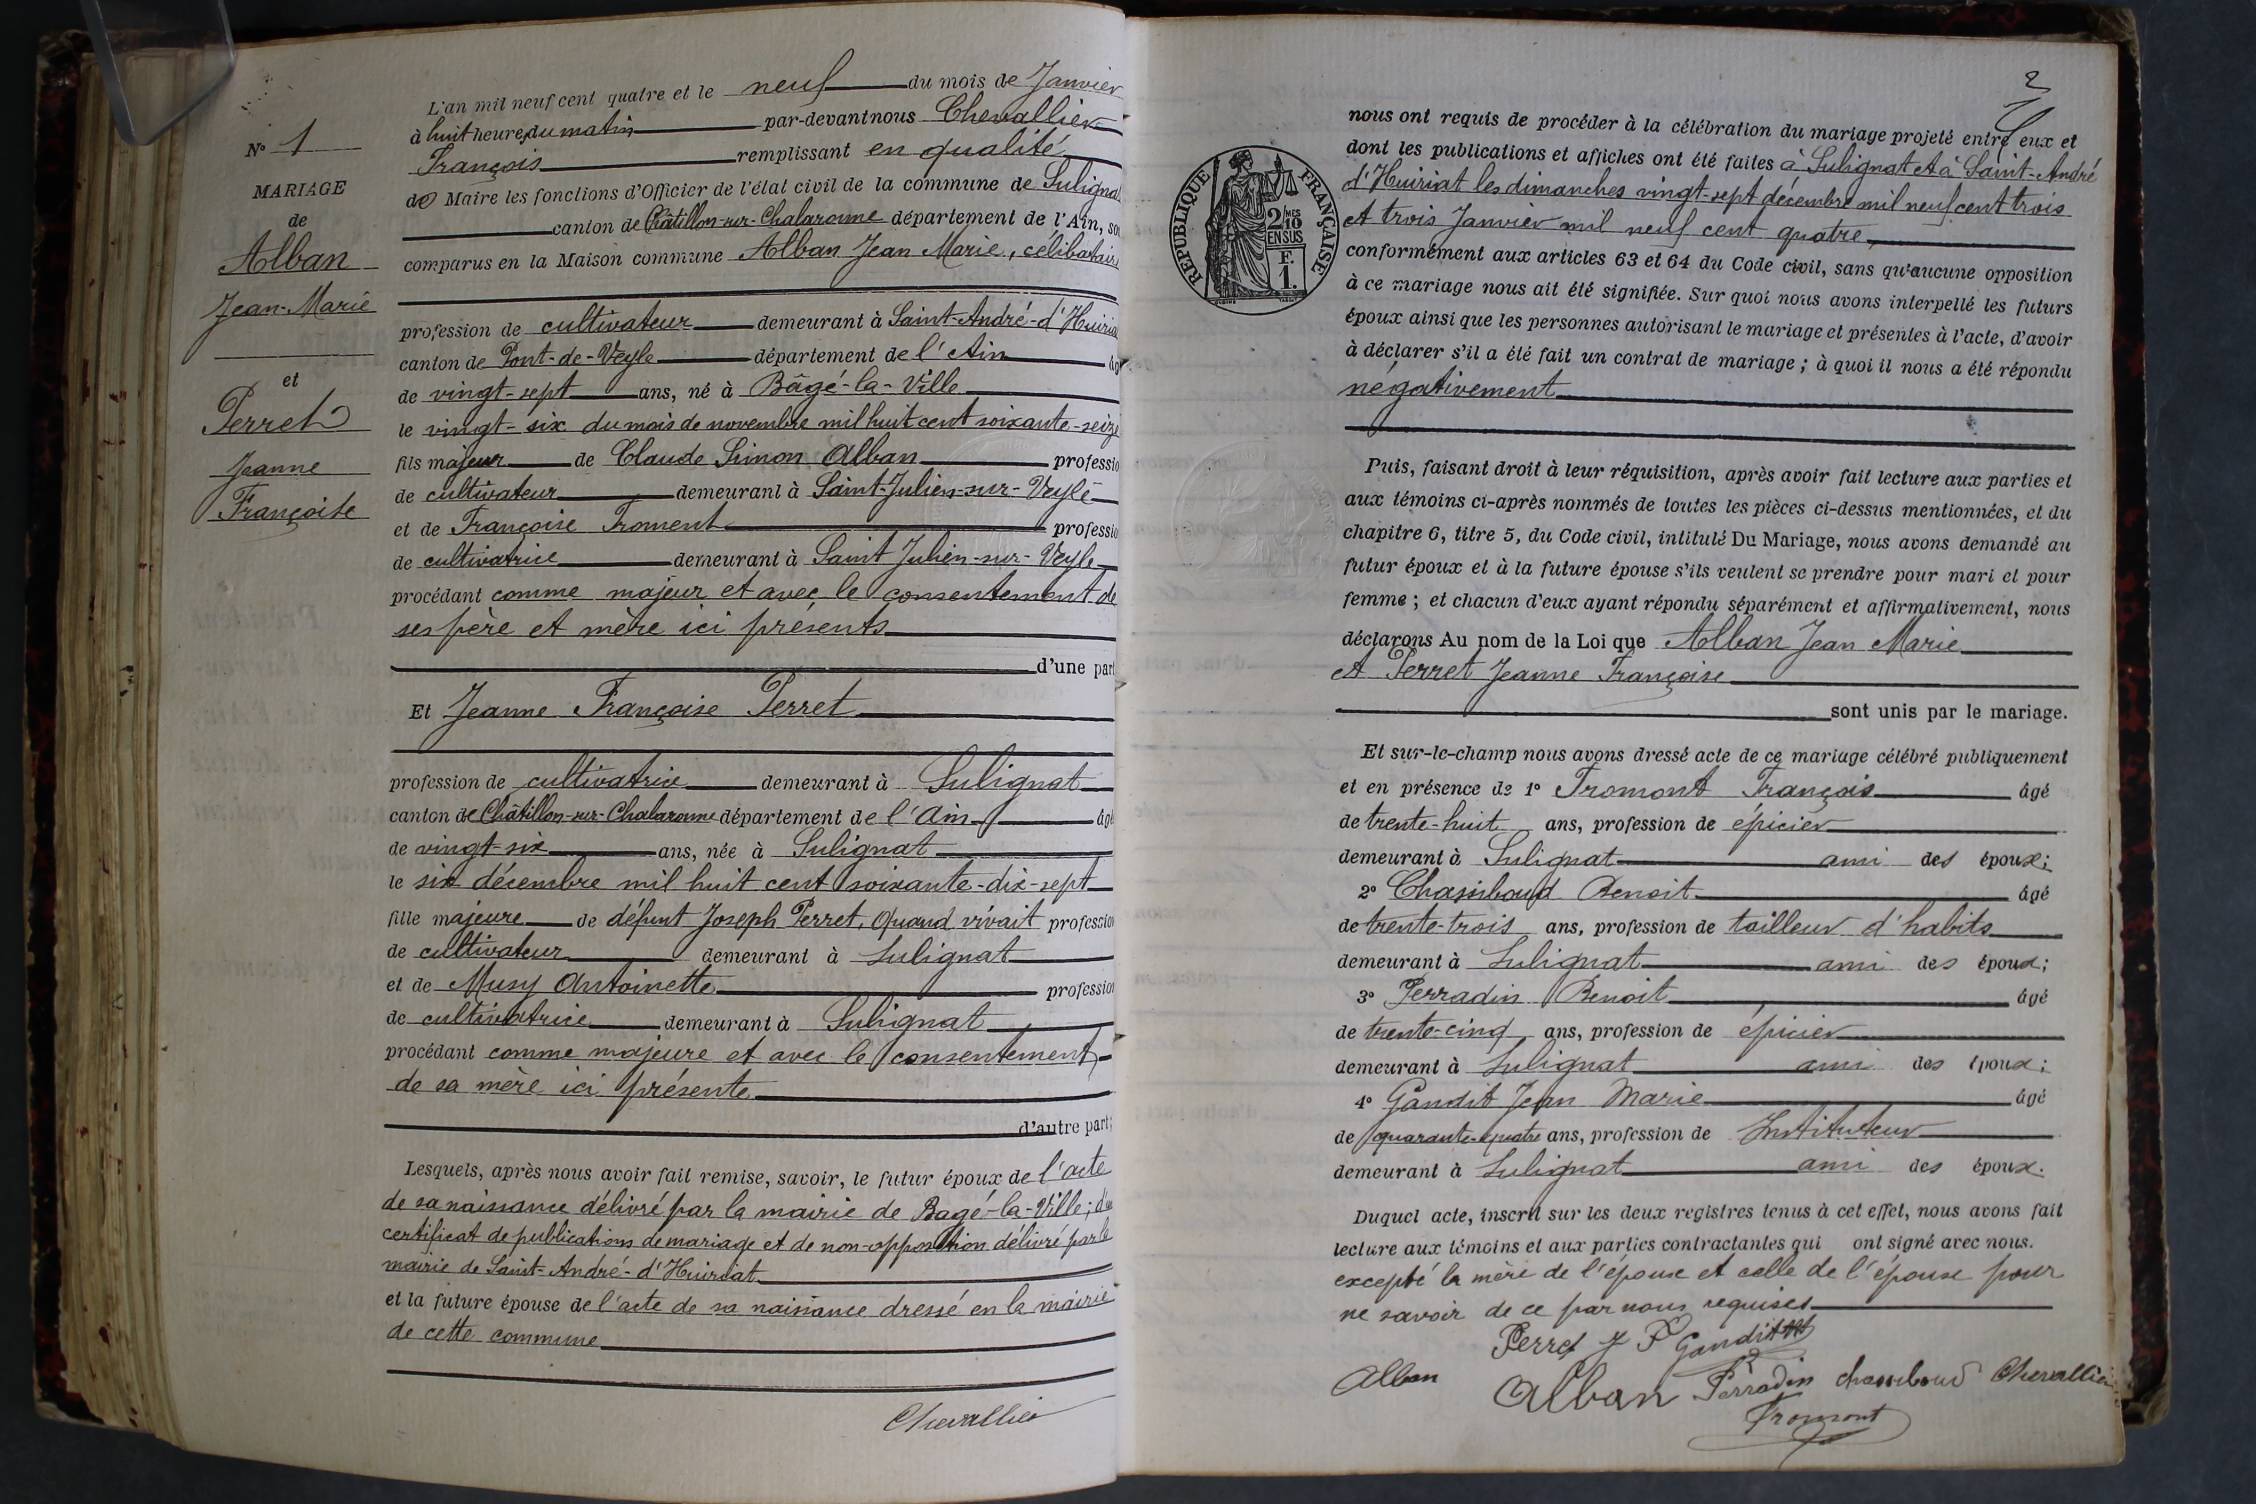 L'an mil neuf cent quatre et le neuf du mois de Janvier
à huit heures du matin par-devant nous Chevallier
François remplissant en qualité
de Maire les fonctions d'Officier de l'état civil de la commune de Sulignat
canton de Châtillon-sur-Chalaronne département de l'Ain, so
comparus en la Maison commune Alban Jean Marie, célibataire
profession de cultivateur demeurant à Saint-André-d'Huiriat
canton de Pont-de-Veyle département de l'Ain âg
de vingt-sept ans, né à Bâgé-la-Ville
le vingt-six du mois de novembre mil huit cent soixante-seize
fils majeur de Claude Simon Alban professio
de cultivateur demeurant à Saint-Julien-sur-Veyle
et de Françoise Froment professio
de cultivatrice demeurant à Saint Julien-sur-Veyle
procédant comme majeur et avec le consentement de
ses père et mère ici présents
d'une part
Et Jeanne Françoise Perret
profession de cultivatrice demeurant à Sulignat
canton de Châtillon-sur-Chalaronne département de l'Ain âg
de vingt-six ans, née à Sulignat
le six décembre mil huit cent soixante-dix-sept
fille majeure de défunt Joseph Perret, quand vivait profession
de cultivateur demeurant à Sulignat
et de Musy Antoinette profession
de cultivatrice demeurant à Sulignat
procédant comme majeure et avec le consentement
de sa mère ici présente
d'autre part;
Lesquels, après nous avoir fait remise, savoir, le futur époux de l'acte
de sa naissance délivré par la mairie de Bagé-la-Ville; d'un
certificat de publications de mariage et de non-opposition délivré par la
mairie de Saint-André-d'Huiriat
et la future épouse de l'acte de sa naissance dressé en la mairie
de cette commune
Chevallier
No 1
MARIAGE
de
Alban
Jean-Marie
et
Perret
Jeanne
Françoise
2
RÉPUBLIQUE FRANÇAISE
2/10 MES
EN SUS
F.
1.
nous ont requis de procéder à la célébration du mariage projeté entre eux et
dont les publications et affiches ont été faites à Sulignat et à Saint-André
d'Huiriat les dimanches vingt-sept décembre mil neuf cent trois
et trois Janvier mil neuf cent quatre,
conformément aux articles 63 et 64 du Code civil, sans qu'aucune opposition
à ce mariage nous ait été signifiée. Sur quoi nous avons interpellé les futurs
époux ainsi que les personnes autorisant le mariage et présentes à l'acte, d'avoir
à déclarer s'il a été fait un contrat de mariage; à quoi il nous a été répondu
négativement
Puis, faisant droit à leur réquisition, après avoir fait lecture aux parties et
aux témoins ci-après nommés de toutes les pièces ci-dessus mentionnées, et du
chapitre 6, titre 5, du Code civil, intitulé Du Mariage, nous avons demandé au
futur époux et à la future épouse s'ils veulent se prendre pour mari et pour
femme; et chacun d'eux ayant répondu séparément et affirmativement, nous
déclarons Au nom de la Loi que Alban Jean Marie
et Perret Jeanne Françoise
sont unis par le mariage.
Et sur-le-champ nous avons dressé acte de ce mariage célébré publiquement
et en présence de 1o Fromont François âgé
de trente-huit ans, profession de épicier
demeurant à Sulignat ami des époux;
2o Chassiboud Benoit âgé
de trente-trois ans, profession de tailleur d'habits
demeurant à Sulignat ami des époux;
3o Perradin Benoit âgé
de trente-cinq ans, profession de épicier
demeurant à Sulignat ami des époux;
4o Gandit Jean Marie âgé
de quarante-quatre ans, profession de Instituteur
demeurant à Sulignat ami des époux.
Duquel acte, inscrit sur les deux registres tenus à cet effet, nous avons fait
lecture aux témoins et aux parties contractantes qui ont signé avec nous.
excepté la mère de l'épouse et celle de l'épouse pour
ne savoir de ce par nous requises
Perret J F Gandit
Alban Alban Perradin chassiboud Chevallier
Fromont